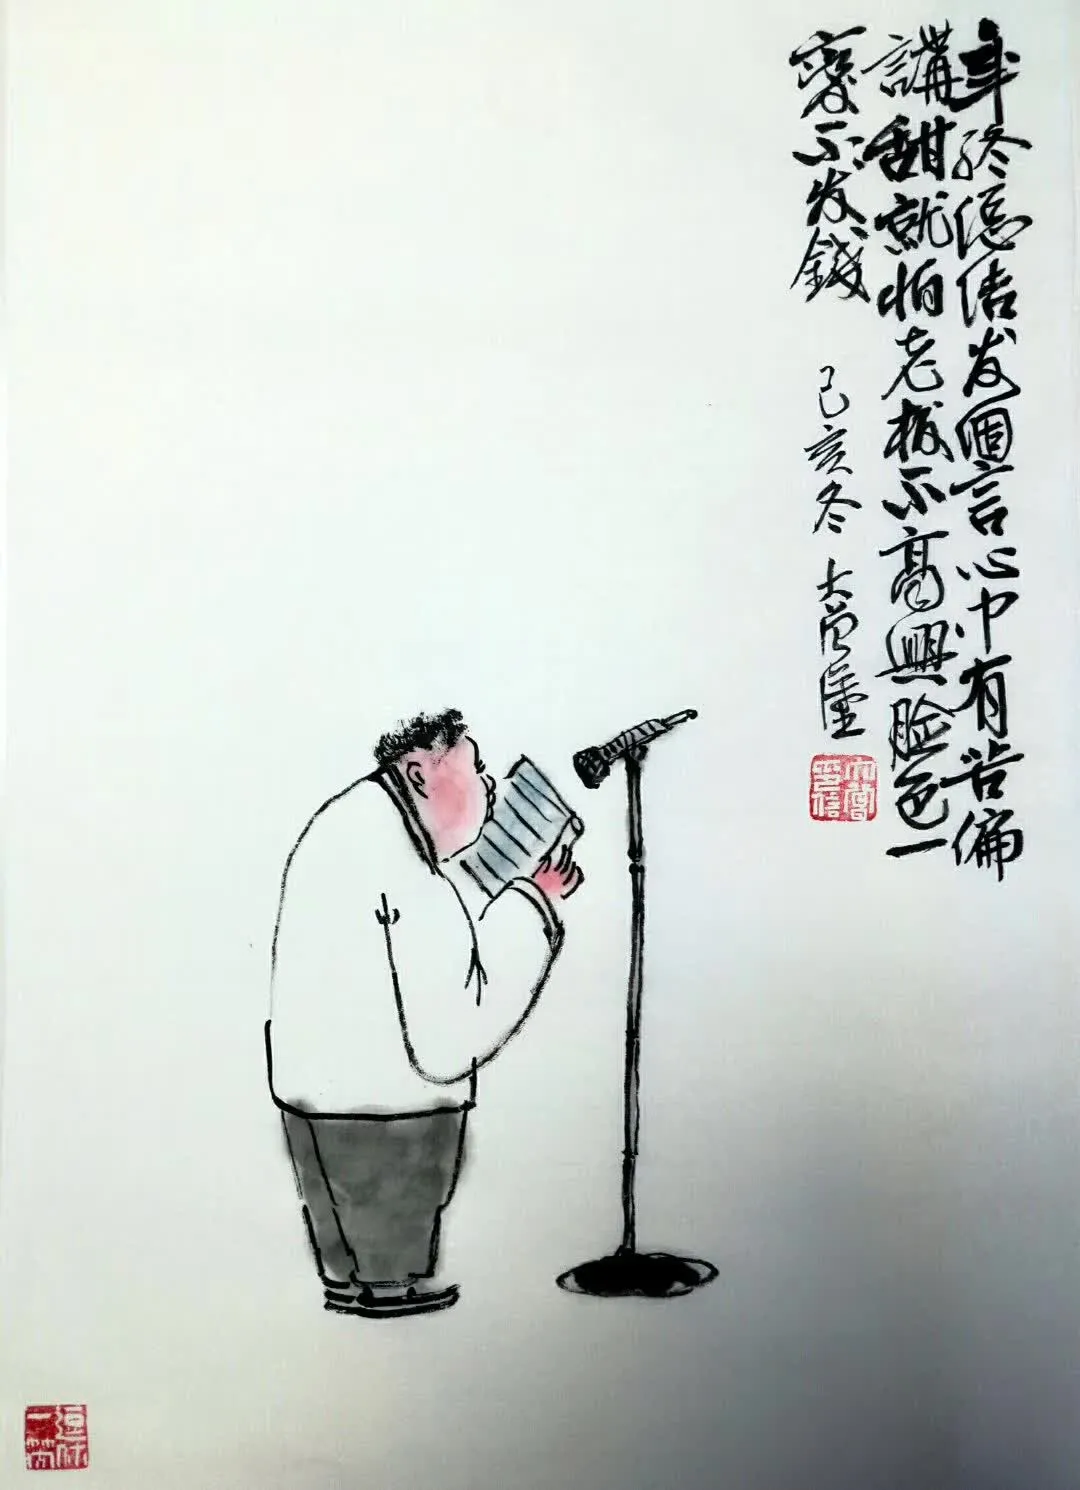 年終總結发個言心中有苦偏
講甜就怕老板不高興脸色一
變不发錢
己亥冬 大
印信
逗你一笑